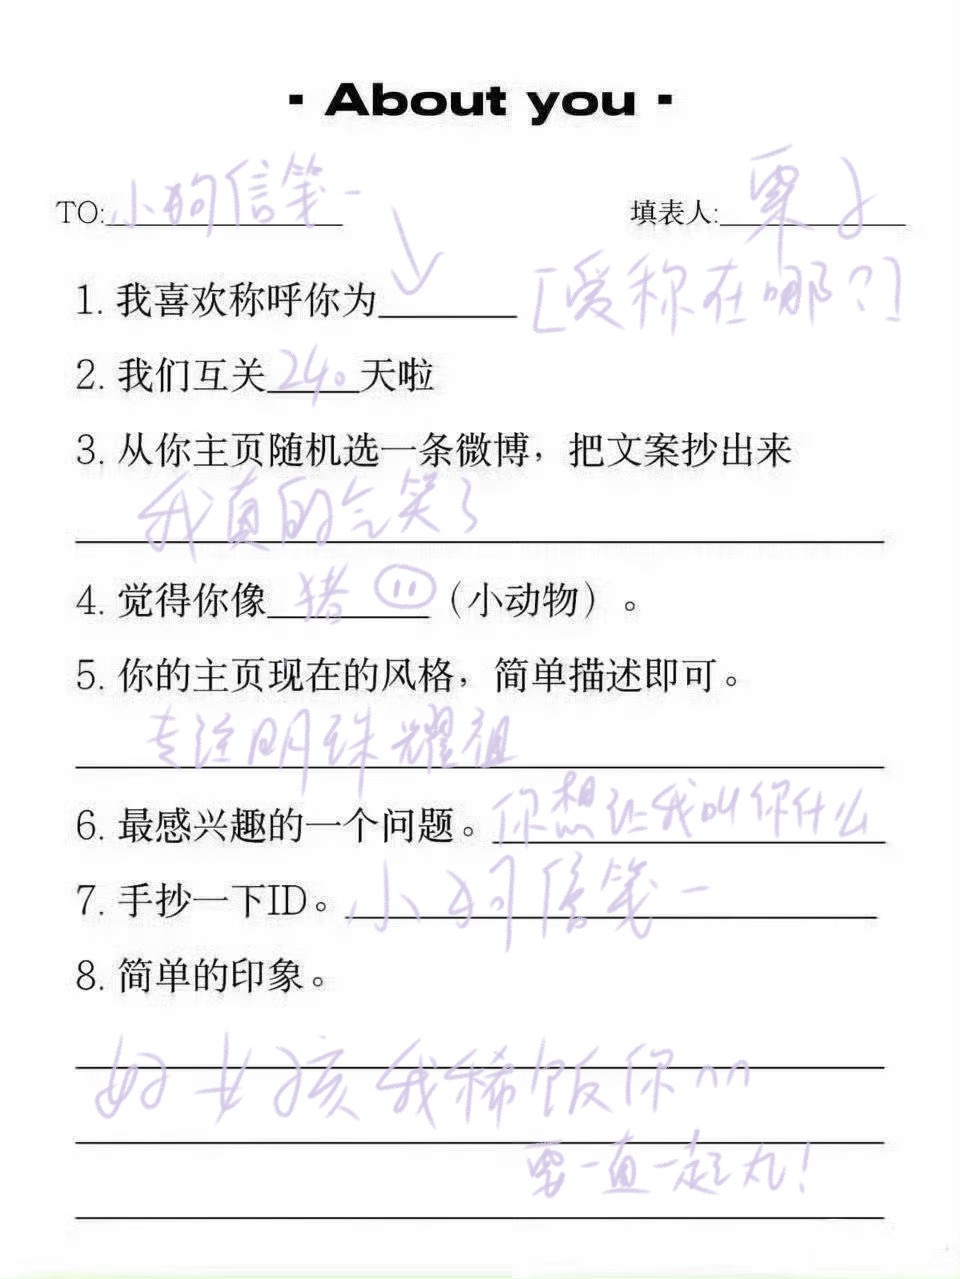 - About you -
TO:小狗信笺一 填表人:栗子
1. 我喜欢称呼你为 [爱称在哪?]
2. 我们互关24。天啦
3. 从你主页随机选一条微博，把文案抄出来
我真的气笑了
4. 觉得你像猪（小动物）。
5. 你的主页现在的风格，简单描述即可。
专注明珠耀祖
6. 最感兴趣的一个问题。你想让我叫你什么
7. 手抄一下ID。小狗信笺一
8. 简单的印象。
好女孩我稀饭你^^
要一直一起丸!